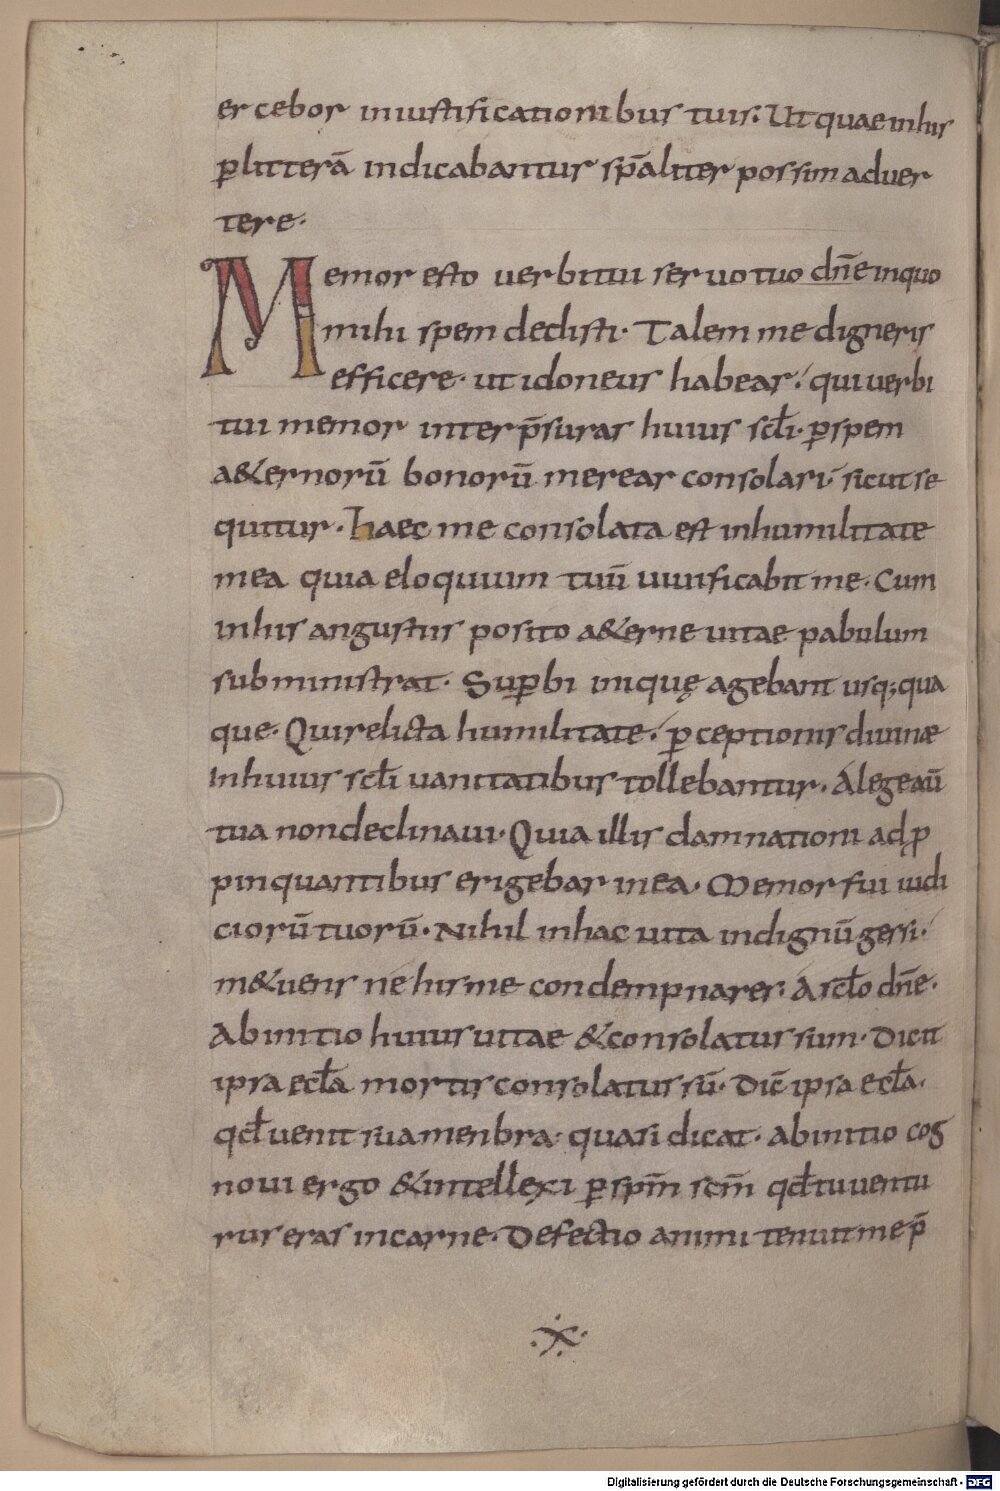 ercebor iniustificationibus tuis. Ut quae inhis
ꝑ litterā indicabantur sp̄aliter possim aduer
tere.
Memor esto uerbi tui seruo tuo dn̄e inquo
mihi spem dedisti. Talem me digneris
efficere. ut idoneus habear. qui uerbi
tui memor inter p̄suras huius scl̄i. ꝑ spem
a&ernorū bonorū merear consolari. sicut se
quitur. Haec me consolata est inhumilitate
mea quia eloquium tuū uiuificabit me. Cum
inhis angustiis posito a&erne uitae pabulum
subministrat. Suꝑbi inique̜ agebant usq; qua
que. Qui relicta humilitate. ꝑceptionis diuinæ
Inhuius scl̄i uanitatibus tollebantur. Alege aū
tua nondeclinaui. Quia illis damnationi adꝓ
pinquantibus erigebar inea. Memor fui iudi
ciorū tuorū. Nihil inhac uita indignū gessi.
m&uens ne his me condempnarer. A scl̄o dn̄e.
Abinitio huius uitae &consolatus sum. Dicit
ipsa eccl̄a mortis consolatus sū. Dic̄ ipsa eccl̄a.
qd̄ uenit sua menbra. quasi dicat. abinitio cog
noui ergo &intellexi ꝑ sp̄m sc̄m qd̄ tu uentu
rus eras incarne. Defectio animi tenuit me p̄
Digitalisierung gefördert durch die Deutsche Forschungsgemeinschaft - DFG